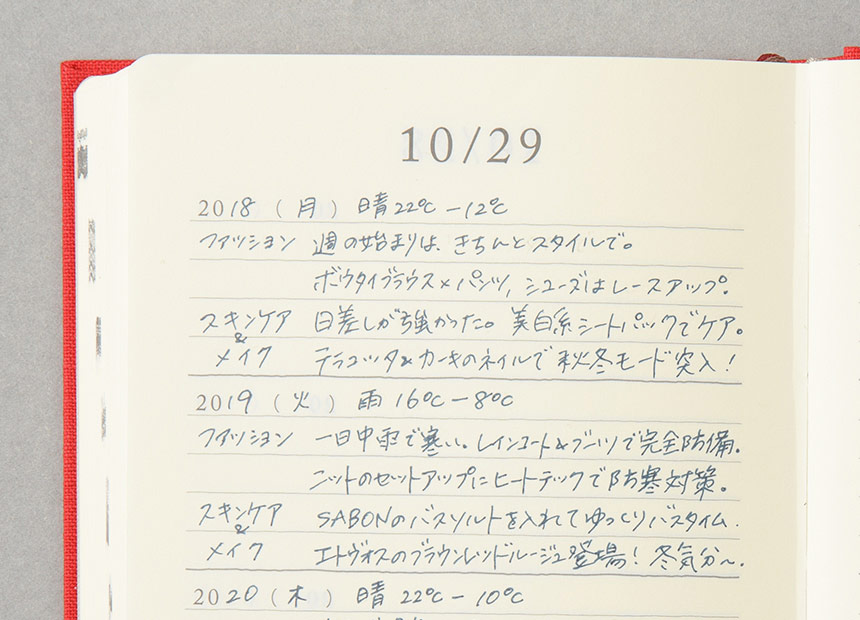 10/29
2018 (月) 晴 22℃ – 12℃
ファッション 週の始まりは、きちんとスタイルで。
ボウタイブラウス×パンツ, シューズはレースアップ。
スキンケア 日差しが強かった。美白系シートパックでケア。
&
メイク テラコッタ&カーキのネイルで秋冬モード突入!
2019 (火) 雨 16℃ – 8℃
ファッション 一日中雨で寒い。レインコート&ブーツで完全防備。
ニットのセットアップにヒートテックで防寒対策。
スキンケア SABONのバスソルトを入れてゆっくりバスタイム.
&
メイク エトヴォスのブラウンレッドルージュ登場! 冬気分〜.
2020 (木) 晴 22℃ – 10℃